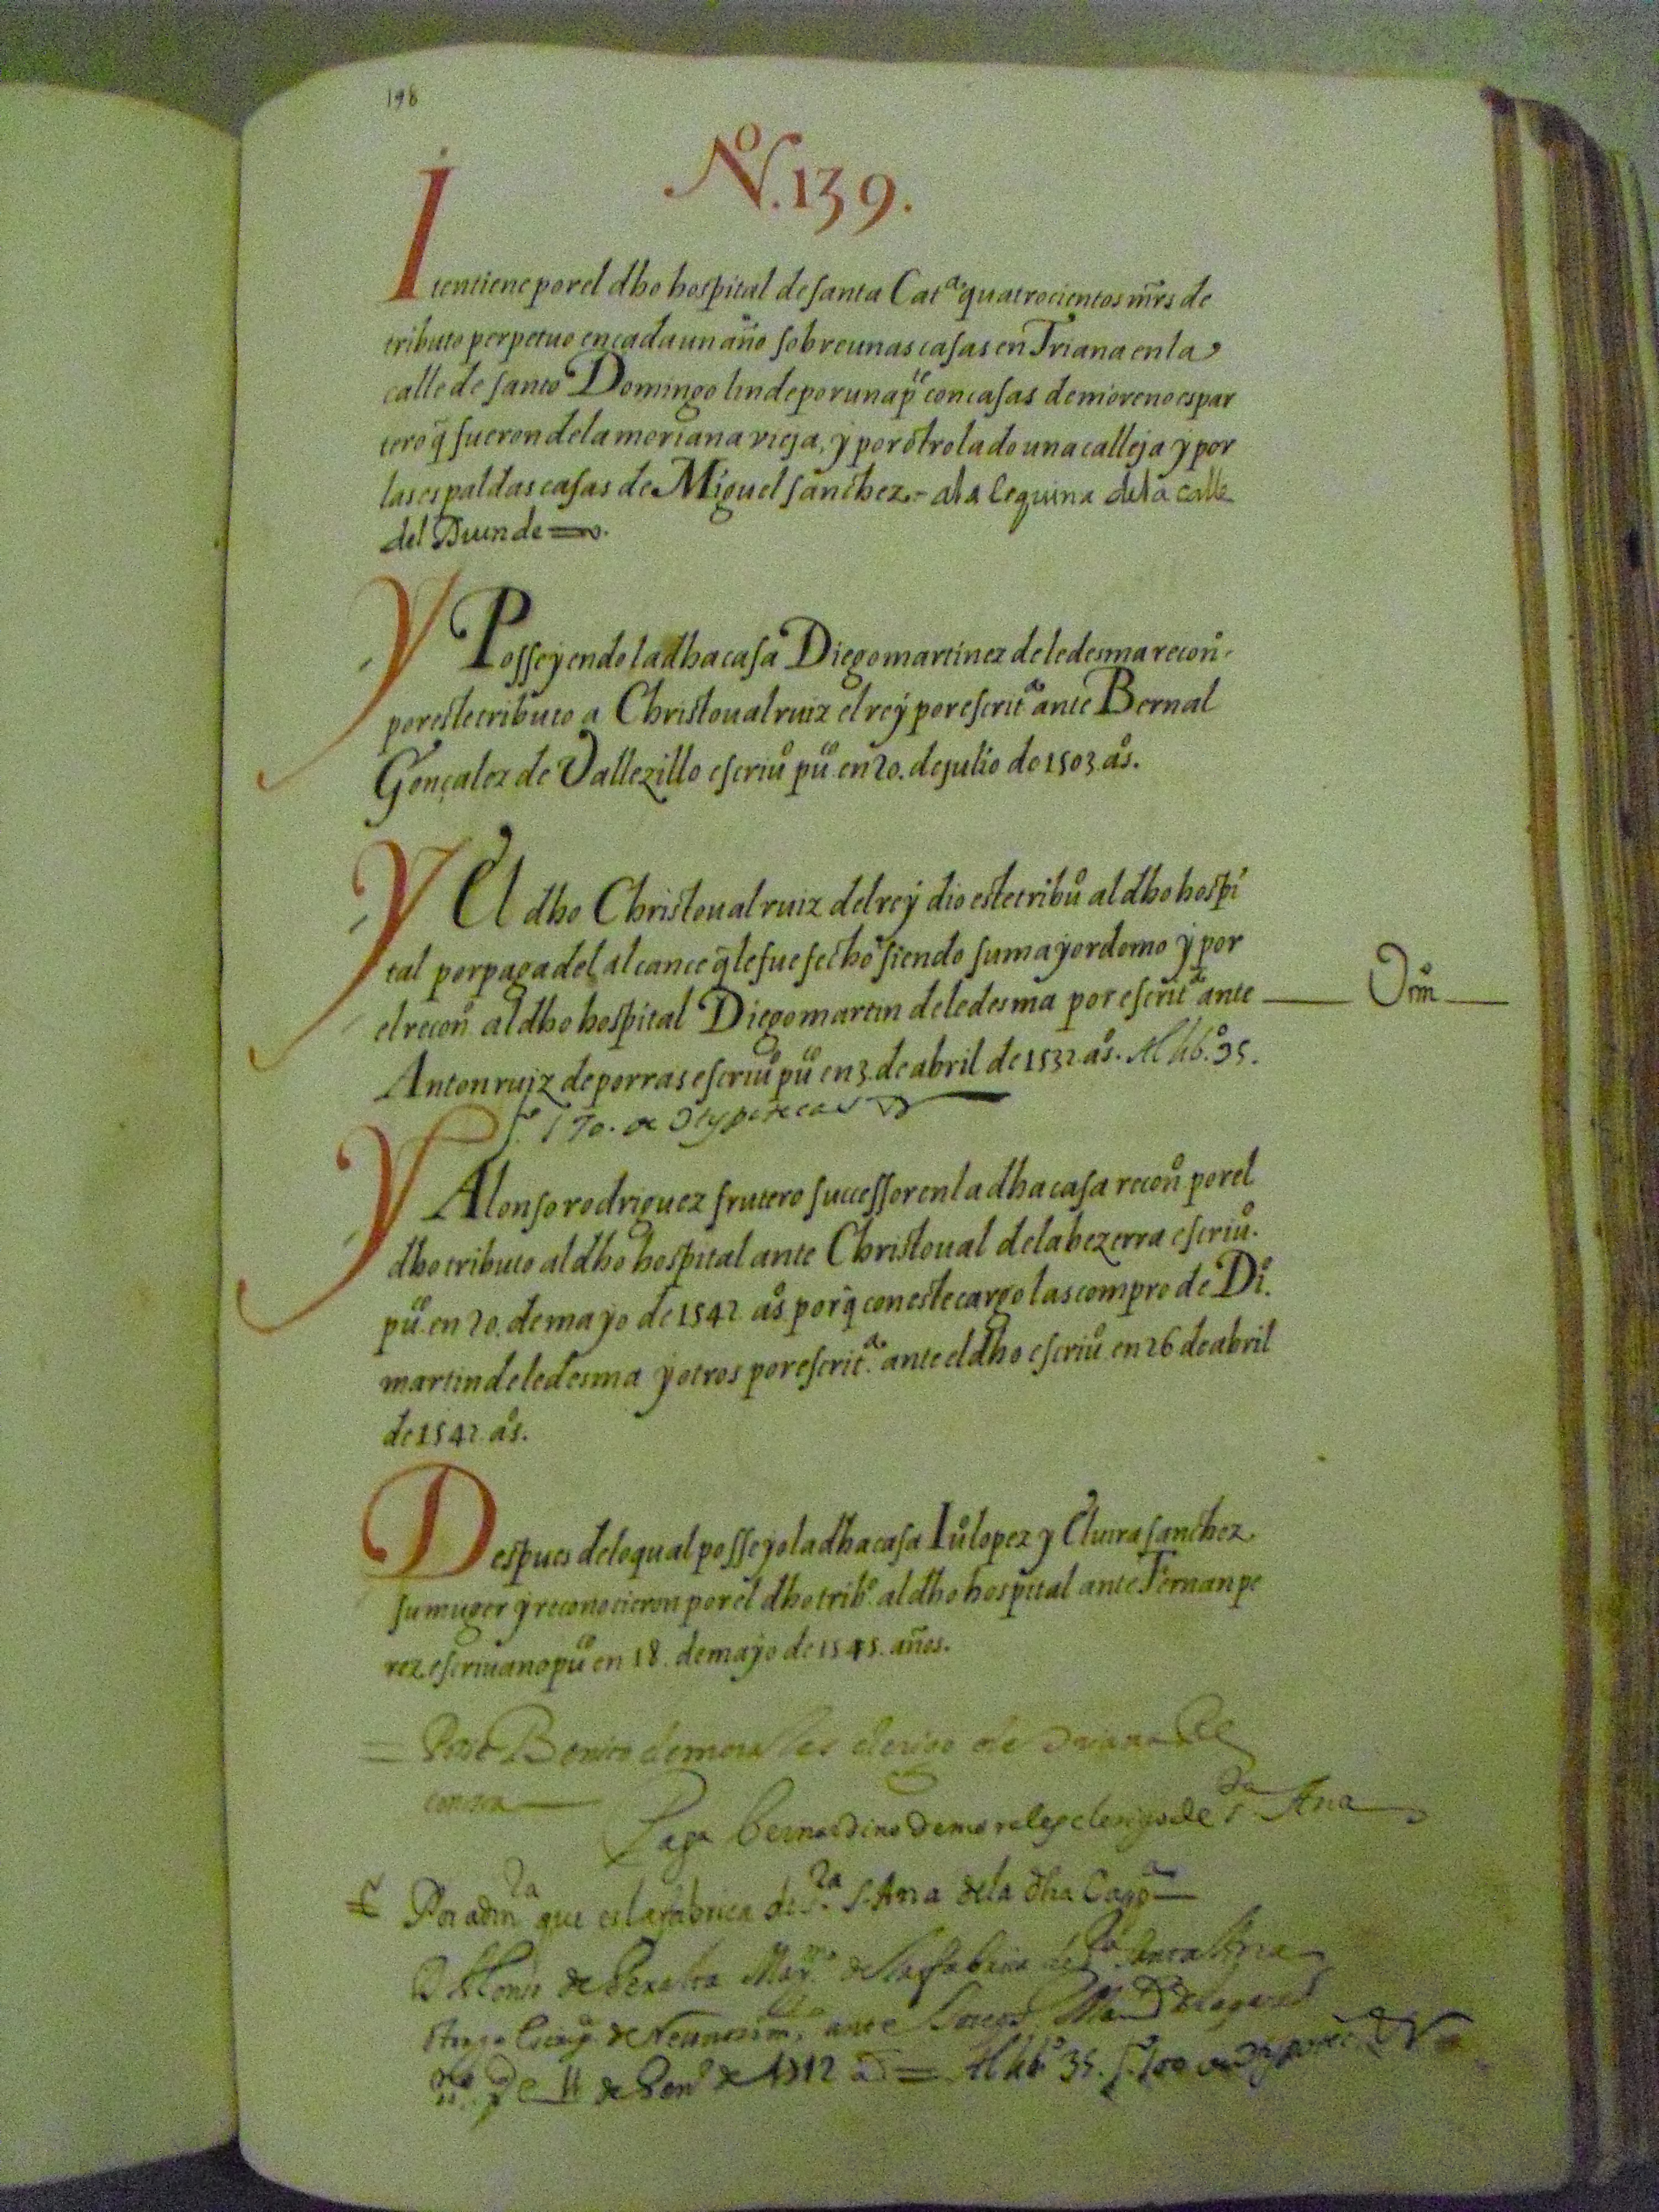 198
Nº. 139.
Itentiene por el dho hospital de santa Catª quatrocientos mrs de
tributo perpetuo en cada un año sobre unas casas en Triana en la
calle de santo Domingo linde por una pte con casas de moreno espar
tero q̃ fueron de la moriana vieja, y por otro lado una calleja y por
las espaldas casas de Miguel sanchez.- a la esquina de la calle
del Duende
Y Posseyendo la dha casa Diego martinez de ledesma recon.º
por este tributo a Christoual ruiz el rey por escritª ante Bernal
Gonçalez de Vallezillo escriuº puco en 20. de julio de 1503 aºs.
Y El dho Christoual ruiz del rey dio este tribuº al dho hospi
tal por paga del alcance q̃ le fue fecho siendo su mayordomo y por
el reconº al dho hospital Diego martin de ledesma por escritª ante
Anton ruiz de porras escriuº puco en 3. de abril de 1532 aºs. Al libº. 35.
f. 170. de Hypotecas
Y Alonso rodriguez frutero successor en la dha casa reconº por el
dho tributo al dho hospital ante Christoual de la bezerra escriuº.
puco en 20. de mayo de 1542 aºs. porq̃ con este cargo las compro de Diº.
martin de ledesma y otros por escritª. ante el dho escriuº en 26 de abril
de 1542 aºs.
Despues de lo qual posseyo la dha casa Juº lopez y Eluira sanchez
su muger y reconocieron por el dho tribº. al dho hospital ante Fernan pe
rez escriuano puco en 18. de mayo de 1545. años.
clerigo de
Paga bernardino de morales clerigo de Sta Ana
Por admra que es la fabrica de Sra S. Ana de la dha
de Peralta Maymo de la fabrica de Sra Santa Ana
ante
11 de de 1712 = Al libº 35. f.